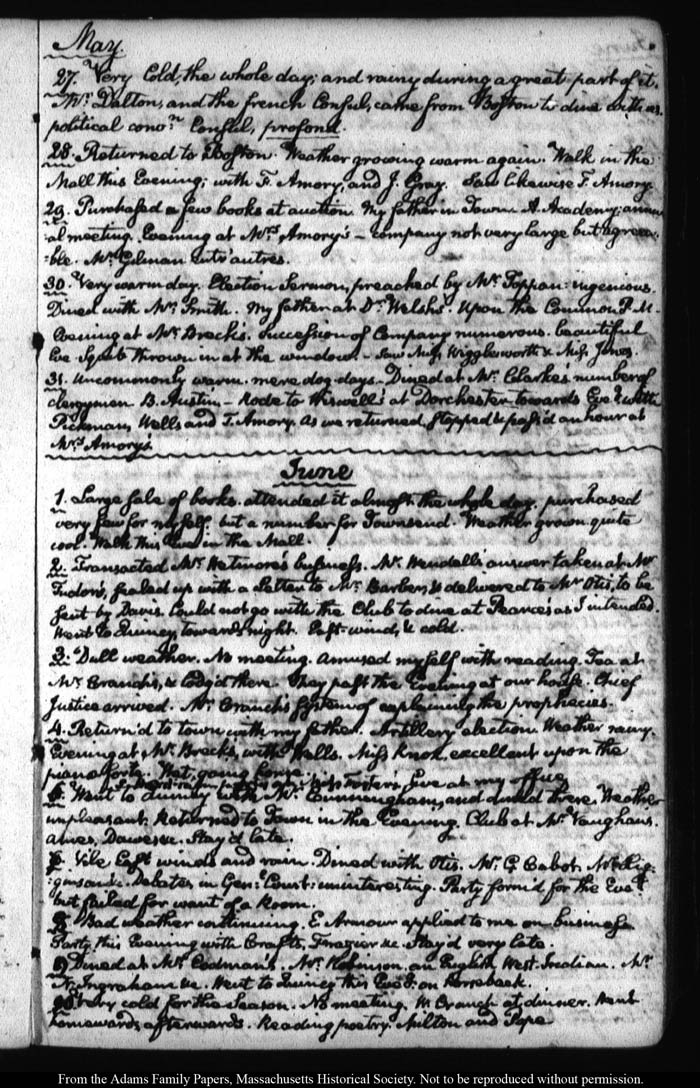 May.
27. Very Cold, the whole day; and rainy during a great part of it.
Mr. Dalton, and the french Consul, came from Boston to dine with us.
political conv:n Consul, profond.
28. Returned to Boston. Weather growing warm again. Walk in the
Mall this Evening; with F. Amory, and J. Gray. Saw likewise T. Amory.
29. Purchased a few books at auction. My father in Town. A. Academy; annu
al meeting. Evening at Mrs. Amory's — company not very large but agreea
:ble. Mr. Gilman entr'autres.
30. Very warm day. Election Sermon, preached by Mr. Tappan: ingenious.
Dined with Mr. Smith. My father at Dr. Welsh's. Upon the Common P.M.
Evening at Mr. Breck's. Succession of Company numerous. beautiful
Eve. Squib thrown in at the window. — Saw Miss Wigglesworth & Miss Jones.
31. Uncommonly warm. mere dog-days. Dined at Mr. Clarke's number of
clergymen B. Austin — Rode to Hiswell's at Dorchester towards Eve: with
Pickman, Wells and T. Amory. As we returned, stopped & pass'd an hour at
Mrs. Amory's.
June
1. Large sale of books. attended it almost the whole day. purchased
very few for myself. but a number for Townsend. Weather grown quite
cool. Walk this Eve in the Mall.
2. Transacted Mr. Wetmore's business. Mr. Wendell's answer taken at Mr
Tudor's, sealed up with a Letter to Mr. Barber, & delivered to Mr Otis, to be
sent by Davis. Could not go with the Club to dine at Pearce's as I intended.
Went to Quincy, towards night. East-wind, & cold.
3. Dull weather. No meeting. Amused myself with reading. Tea at
Mr. Cranch's, & lodg'd there. They past the Evening at our house. Chief
Justice arrived. Mr. Cranch's system of explaining the prophecies.
4. Return'd to town with my father. Artillery election. Weather rainy.
Evening at Mr. Breck's, with Wells. Miss Knox, excellent upon the
piano forte. Wet, going home.
Foster's, Eve at my office
6. Went to dinner with Mr. Cunningham, and dined there. Weather
unpleasant. Returned to Town in the Evening. Club at Mr. Vaughan's.
Ames, Dawes &c. Stay'd late.
7. Vile East winds and rain. Dined with Otis. Mr. G. Cabot. Mr. Hig-
:ginson &c. Debates in Genl: Court: uninteresting. Party form'd for the Eve:g
but failed for want of a Room.
8. Bad weather continuing. E. Armour applied to me on business
Party this Evening with Crafts, Frazier &c. Stay'd very late.
9. Dined at Mr. Codman's. Mr. Robinson, an English West-Indian. Mr.
N. Ingraham &c. Went to Quincy this Eve:g on Horseback.
10. Very cold for the Season. No meeting. W. Cranch at dinner. Went
homewards, afterwards. Reading poetry. Milton and Pope
From the Adams Family Papers, Massachusetts Historical Society. Not to be reproduced without permission.